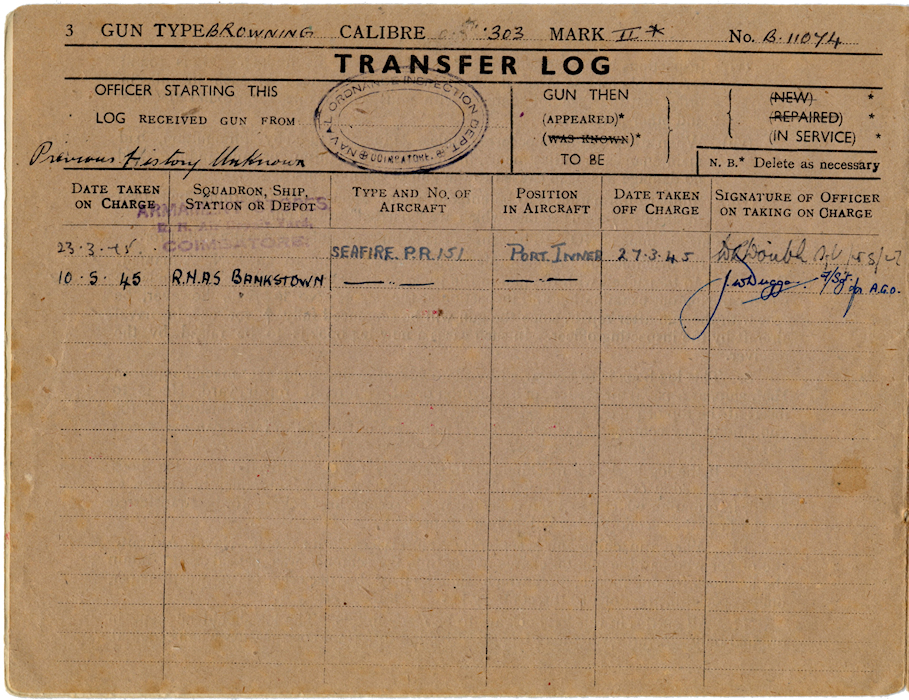 3 GUN TYPE BROWNING CALIBRE .303 MARK II* No. B.11074
TRANSFER LOG
OFFICER STARTING THIS
LOG RECEIVED GUN FROM
Previous History Unknown
NAVAL ORDNANCE INSPECTION DEPT.
COIMBATORE.
GUN THEN
(APPEARED)*
(WAS KNOWN)*
TO BE
(NEW) *
(REPAIRED) *
(IN SERVICE) *
N. B.* Delete as necessary
DATE TAKEN ON CHARGE
SQUADRON, SHIP, STATION OR DEPOT
TYPE AND NO. OF AIRCRAFT
POSITION IN AIRCRAFT
DATE TAKEN OFF CHARGE
SIGNATURE OF OFFICER ON TAKING ON CHARGE
COIMBATORE
23.3.45. SEAFIRE. P.R.151 PORT. INNER 27.3.45
10.5.45 R.N.A.S BANKSTOWN — .. — — .. — for A.G.O.